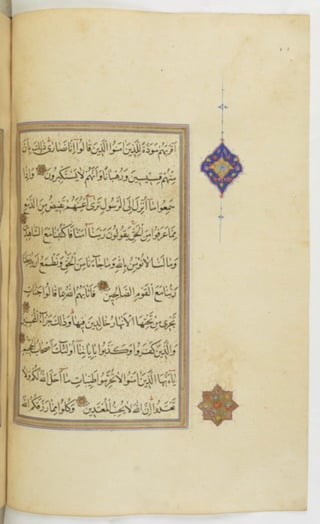 أقربهم مودة للذين آمنوا الذين قالوا إنا نصارى ذلك بأن
منهم قسيسين ورهبانا وأنهم لا يستكبرون وإذا
سمعوا ما أنزل إلى الرسول ترى أعينهم تفيض من الدمع
مما عرفوا من الحق يقولون ربنا آمنا فاكتبنا مع الشاهدين
وما لنا لا نؤمن بالله وما جاءنا من الحق ونطمع أن يدخلنا
ربنا مع القوم الصالحين فأثابهم الله بما قالوا جنات
تجري من تحتها الأنهار خالدين فيها وذلك جزاء المحسنين
والذين كفروا وكذبوا بآياتنا أولئك أصحاب الجحيم
يا أيها الذين آمنوا لا تحرموا طيبات ما أحل الله لكم ولا
تعتدوا إن الله لا يحب المعتدين وكلوا مما رزقكم الله